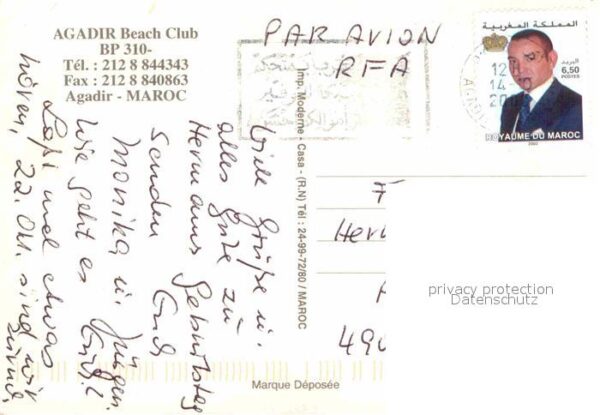 AGADIR Beach Club
BP 310-
Tél. : 212 8 844343
Fax : 212 8 840863
Agadir - MAROC
PAR AVION
RFA
المملكة المغربية
البريد
6,50
POSTES
ROYAUME DU MAROC
2002
12
14
20
AGADIR
Viele Grüße u.
alles Gute zu
Hermanns Geburtstag
senden Euch
Monika u. Jürgen.
Wie geht es Euch?
Laßt mal etwas
hören, 22. Okt. sind wir
zurück.
Imp. Moderne - Casa - (R.N) Tél : 24-99-72/80 / MAROC
Her
490
privacy protection
Datenschutz
Marque Déposée